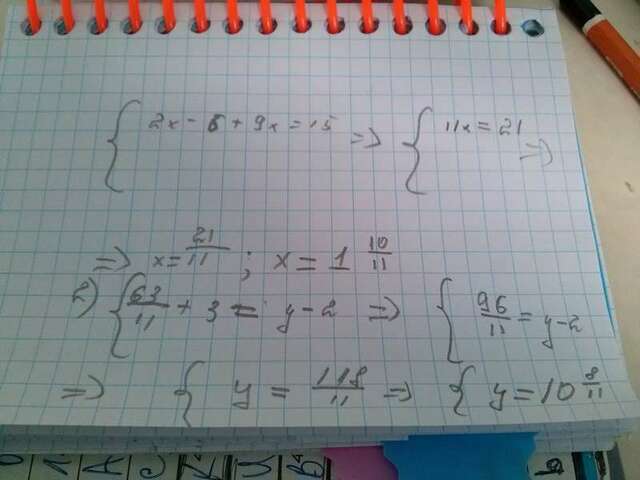 { 2x - 6 + 9x = 15 => { 11x = 21 =>
=> x = 21/11 ; x = 1 10/11
2) { 63/11 + 3 = y - 2 => { 96/11 = y - 2
=> { y = 118/11 => { y = 10 8/11